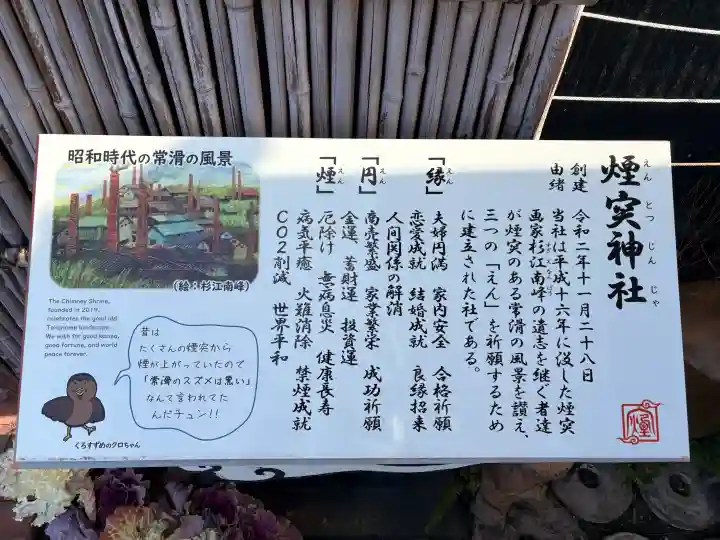 煙突神社
えんとつじんじゃ
創建 令和二年十一月二十八日
由緒 当社は平成十六年に没した煙突
画家杉江南峰の遺志を継ぐ者達
が煙突のある常滑の風景を讃え、
三つの「えん」を祈願するため
に建立された社である。
「縁」 夫婦円満 家内安全 合格祈願
えん
恋愛成就 結婚成就 良縁招来
人間関係の解消
「円」 商売繁盛 家業繁栄 成功祈願
えん
金運、蓄財運 投資運
「煙」 厄除け 無病息災 健康長寿
えん
病気平癒 火難消除 禁煙成就
CO2削減 世界平和
昭和時代の常滑の風景
(絵:杉江南峰)
The Chimney Shrine,
founded in 2019,
celebrates the good old
Tokoname landscape.
We wish for good karma,
good fortune, and world
peace forever.
昔は
たくさんの煙突から
煙が上がっていたので
「常滑のスズメは黒い」
なんて言われてた
んだチュン!!
くろすずめのクロちゃん